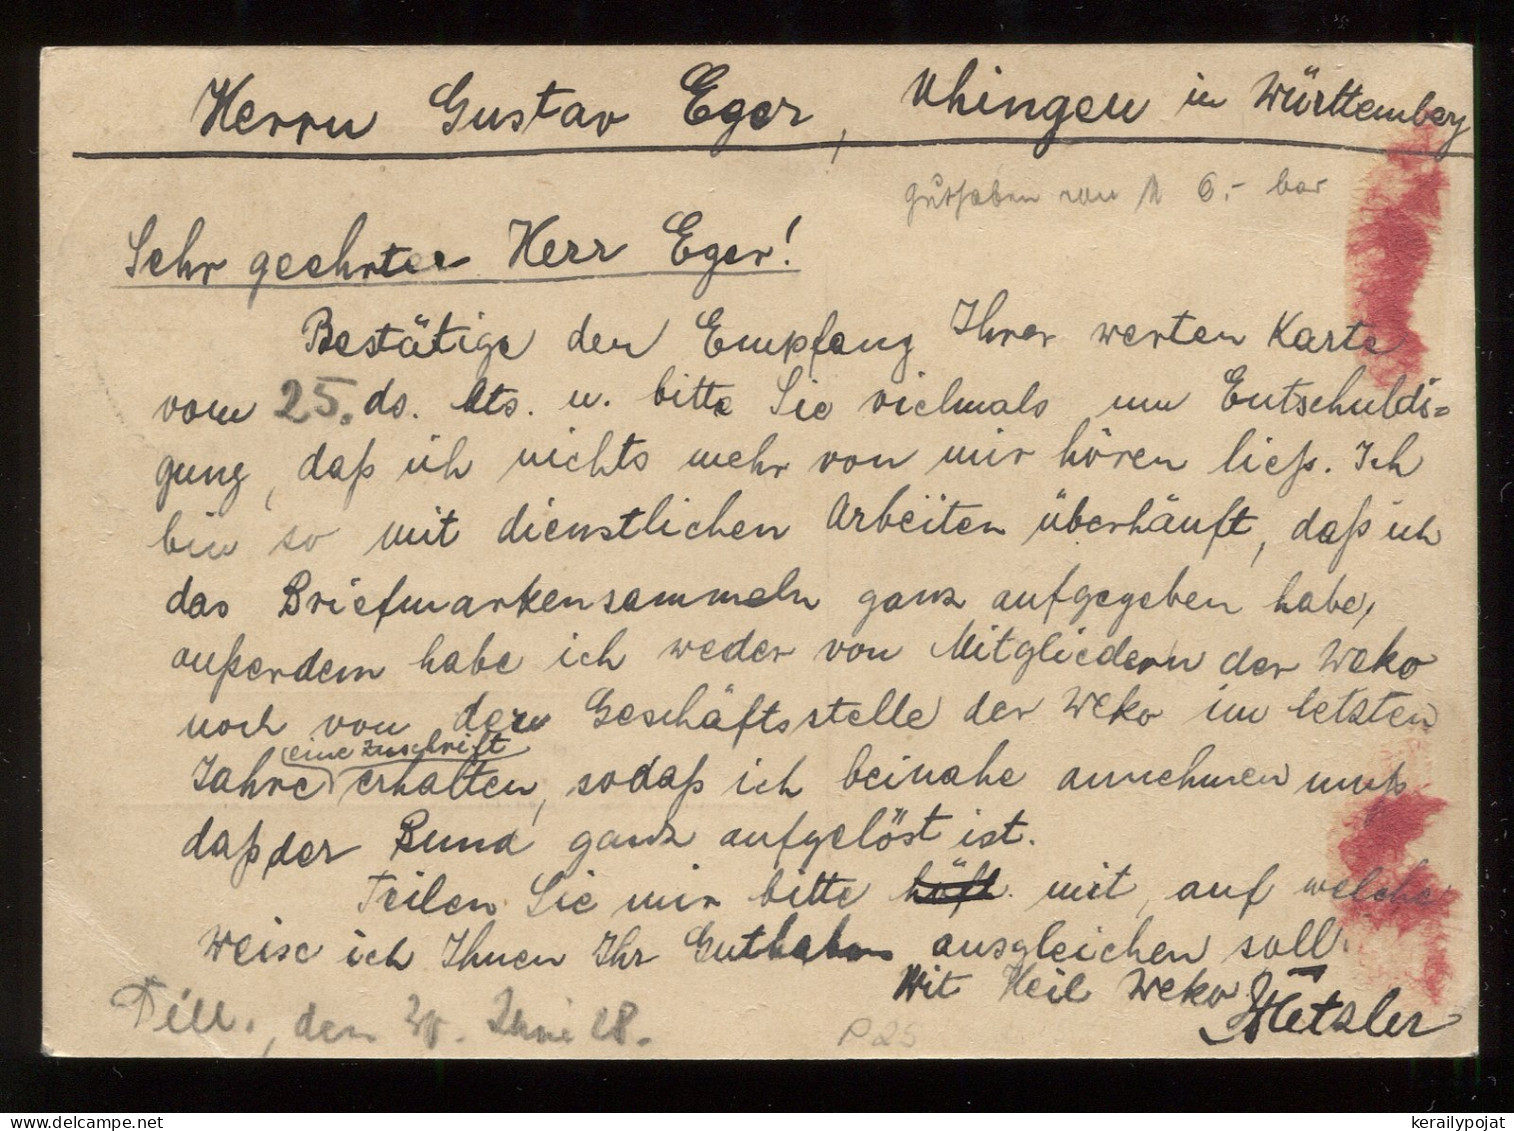 Herrn Gustav Eger, Uhingen in Württemberg
Guthaben von M 6.- bar
Sehr geehrter Herr Eger!
Bestätige den Empfang Ihrer werten Karte
vom 25. ds. Mts. u. bitte Sie vielmals um Entschuldi=
gung, daß ich nichts mehr von mir hören ließ. Ich
bin so mit dienstlichen Arbeiten überhäuft, daß ich
das Briefmarkensammeln ganz aufgegeben habe,
außerdem habe ich weder von Mitgliedern der Weko
noch von der Geschäftsstelle der Weko im letzten
eine Zuschrift
Jahre erhalten, sodaß ich beinahe annehmen muß
daß der Bund ganz aufgelöst ist.
Teilen Sie mir bitte höfl. mit, auf welche
Weise ich Ihnen Ihr Guthaben ausgleichen soll.
Mit Heil Weko!
Metzler
Dill., den 30. Juni 28.
P 25
kerailypojat @ delcampe.net